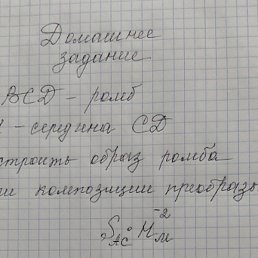 Домашнее
задание
BCD - ромб
- середина CD
строить образ ромба
и композиции преобразо
S_AC ∘ H_M^-2